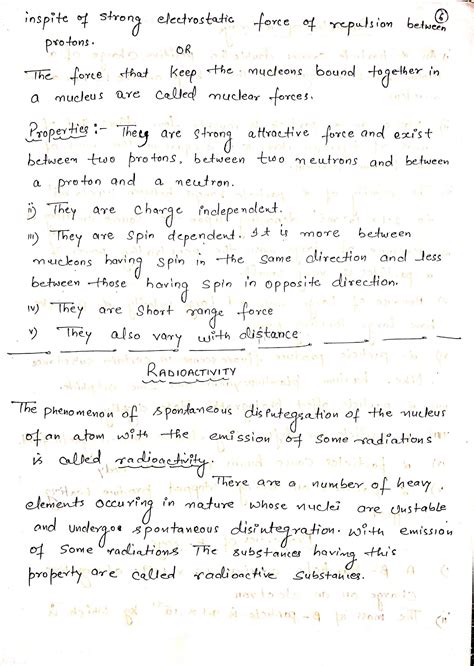 inspite of strong electrostatic force of repulsion between
6
protons.
OR
The force that keep the nucleons bound together in
a nucleus are called nuclear forces.
Properties :- They are strong attractive force and exist
between two protons, between two neutrons and between
a proton and a neutron.
ii) They are charge independent.
iii) They are spin dependent. It is more between
nucleons having spin in the same direction and less
between those having spin in opposite direction.
iv) They are short range force
v) They also vary with distance
RADIOACTIVITY
The phenomenon of spontaneous disintegration of the nucleus
of an atom with the emission of some radiations
is called radioactivity.
There are a number of heavy
elements occuring in nature whose nuclei are unstable
and undergoe spontaneous disintegration. with emission
of some radiations The substances having this
property are called radioactive substances.